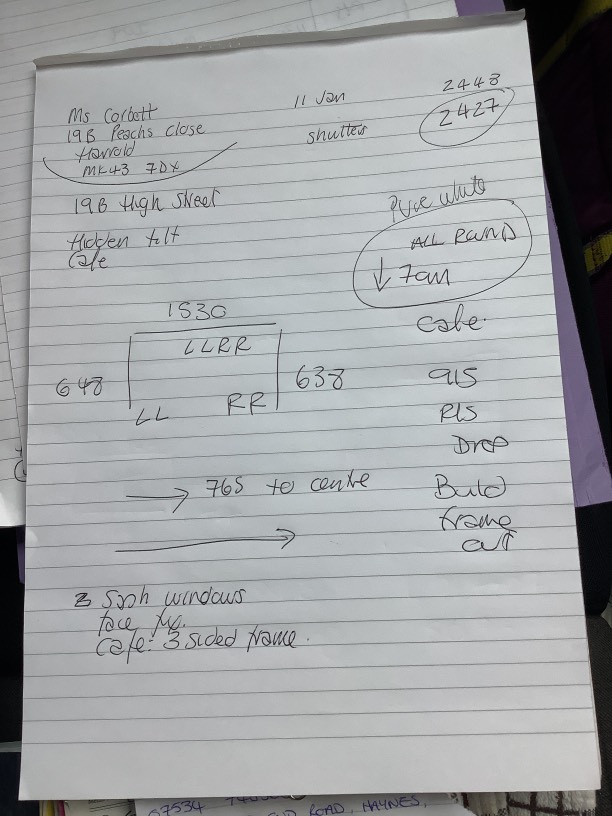 Ms Corbett
19B Peachs close
Harrold
MK43 7DX
11 Jan
shutters
2448
2427
19B High Street
Hidden tilt
Cafe
Pure white
ALL ROUND
↓ 7am
Cafe
1530
LLRR
648
638
LL RR
915
PLS
Drop
Build
frame
out
→ 765 to centre
3 Sash windows
face fix.
Cafe: 3 sided frame.
07534
ROAD, HAYNES,